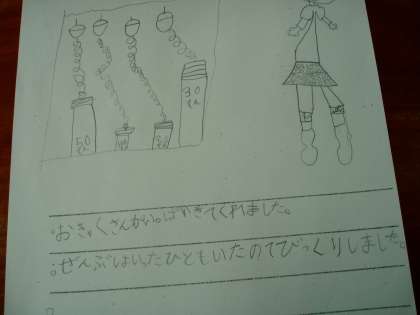 50
30
おきゃくさんがいっぱいきてくれました。
ぜんぶはいったひともいたのでびっくりしました。